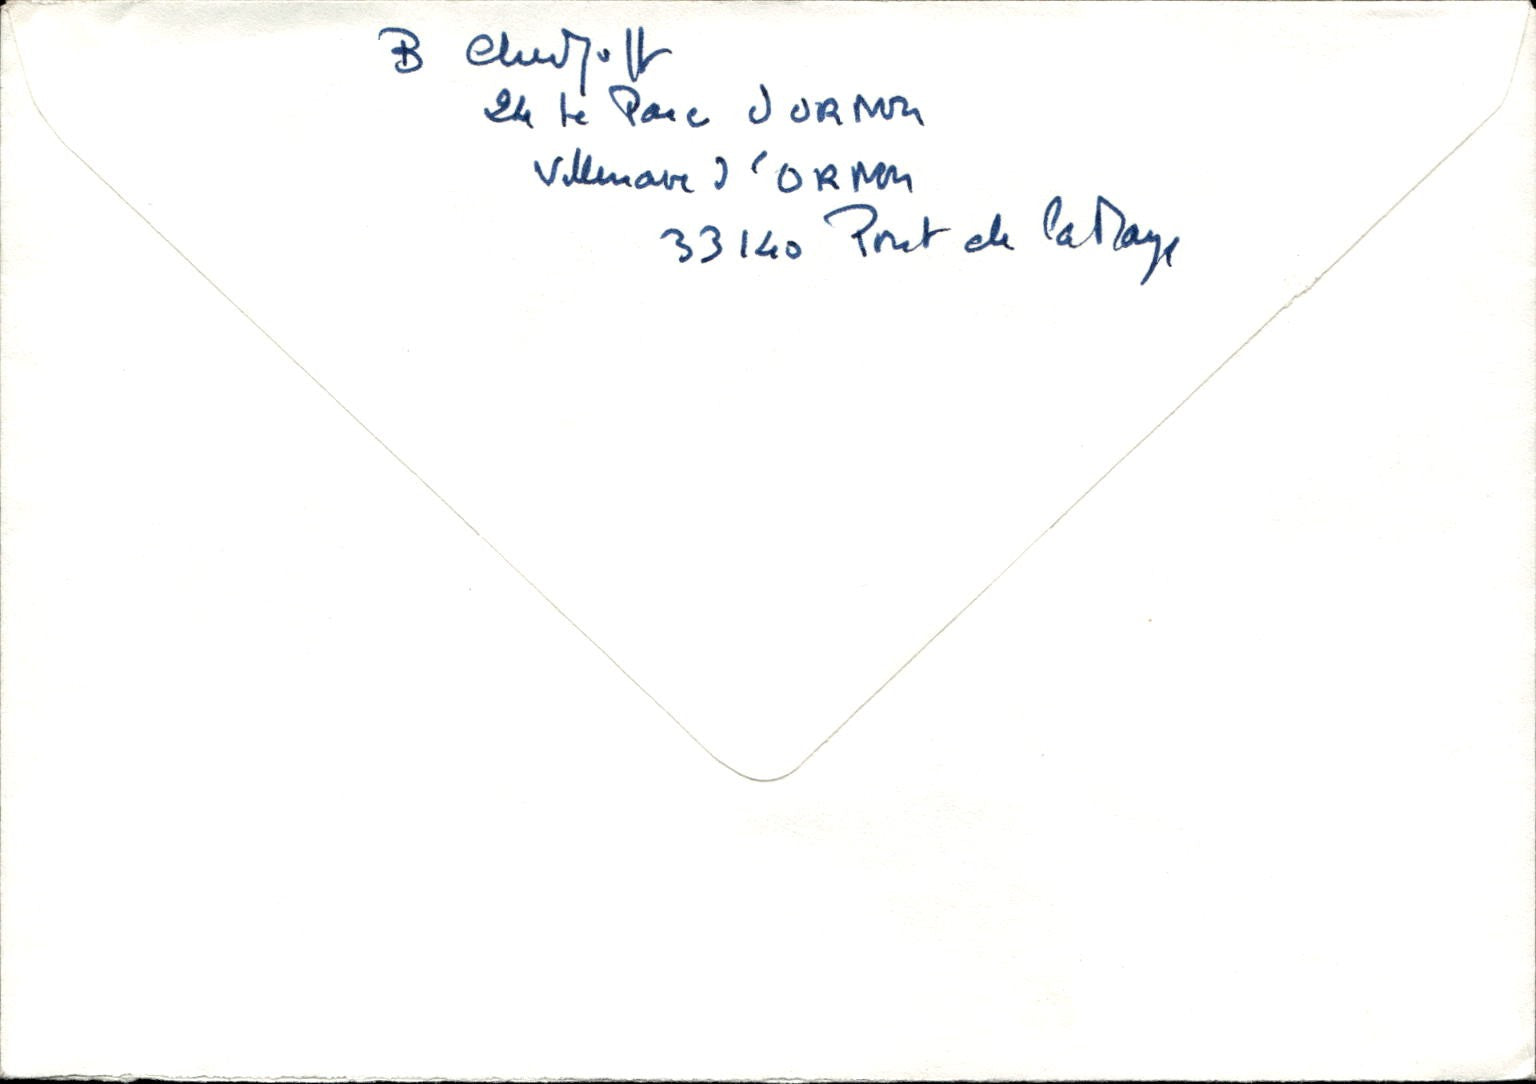 B
24 le Parc d'ORNON
Villenave d'ORNON
33140 Pont de la Maye